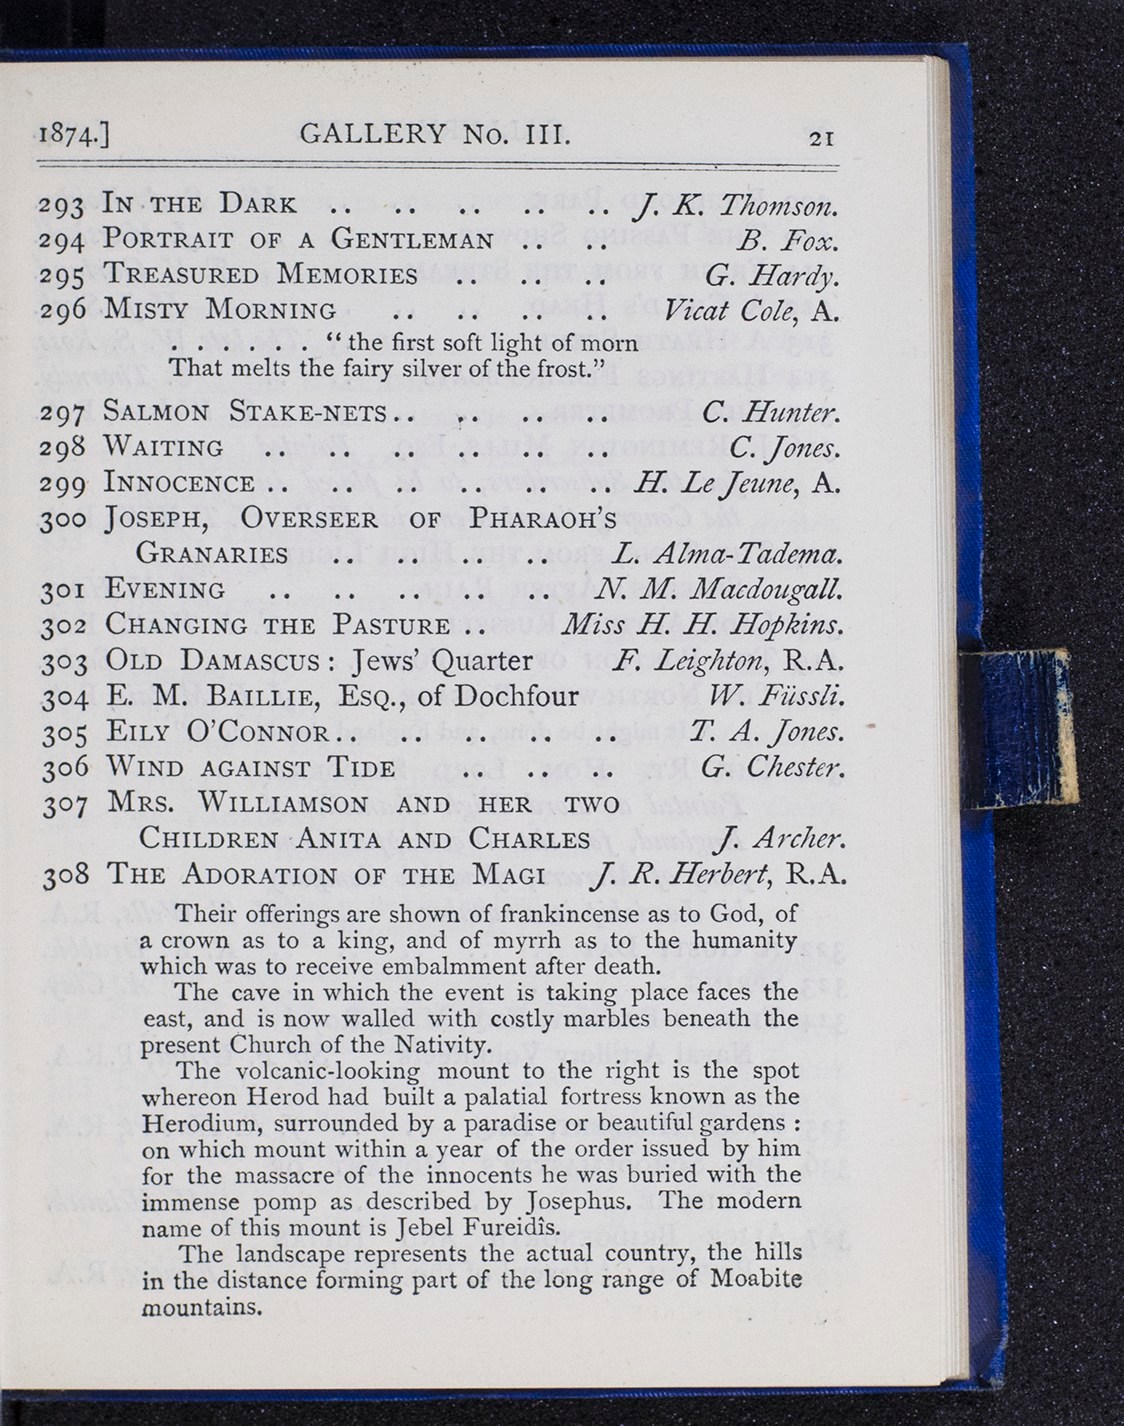 1874.] GALLERY No. III. 21
293 IN THE DARK .. .. .. .. .. J. K. Thomson.
294 PORTRAIT OF A GENTLEMAN .. .. B. Fox.
295 TREASURED MEMORIES .. .. .. G. Hardy.
296 MISTY MORNING .. .. .. .. Vicat Cole, A.
. . . . . . “the first soft light of morn
That melts the fairy silver of the frost.”
297 SALMON STAKE-NETS .. .. .. .. C. Hunter.
298 WAITING .. .. .. .. .. .. C. Jones.
299 INNOCENCE .. .. .. .. .. .. H. Le Jeune, A.
300 JOSEPH, OVERSEER OF PHARAOH'S
GRANARIES .. .. .. .. L. Alma-Tadema.
301 EVENING .. .. .. .. .. N. M. Macdougall.
302 CHANGING THE PASTURE .. Miss H. H. Hopkins.
303 OLD DAMASCUS: Jews' Quarter F. Leighton, R.A.
304 E. M. BAILLIE, ESQ., of Dochfour W. Füssli.
305 EILY O'CONNOR .. .. .. .. .. T. A. Jones.
306 WIND AGAINST TIDE .. .. .. .. G. Chester.
307 MRS. WILLIAMSON AND HER TWO
CHILDREN ANITA AND CHARLES J. Archer.
308 THE ADORATION OF THE MAGI J. R. Herbert, R.A.
Their offerings are shown of frankincense as to God, of
a crown as to a king, and of myrrh as to the humanity
which was to receive embalmment after death.
The cave in which the event is taking place faces the
east, and is now walled with costly marbles beneath the
present Church of the Nativity.
The volcanic-looking mount to the right is the spot
whereon Herod had built a palatial fortress known as the
Herodium, surrounded by a paradise or beautiful gardens :
on which mount within a year of the order issued by him
for the massacre of the innocents he was buried with the
immense pomp as described by Josephus. The modern
name of this mount is Jebel Fureidîs.
The landscape represents the actual country, the hills
in the distance forming part of the long range of Moabite
mountains.